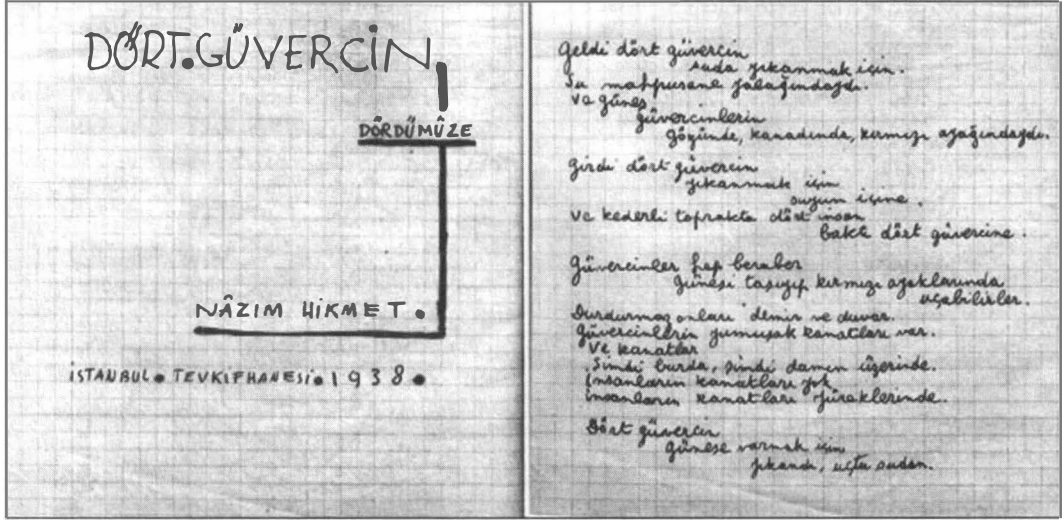 DÖRT.GÜVERCİN
DÖRDÜMÜZE
NÂZIM HİKMET.
İSTANBUL. TEVKİFHANESİ. 1938.
Geldi dört güvercin
suda yıkanmak için.
Su mahpusane yalağındaydı.
ve güneş
güvercinlerin
gözünde, kanadında, kırmızı ayağındaydı.
Girdi dört güvercin
yıkanmak için
suyun içine.
ve kederli toprakta dört insan
baktı dört güvercine.
Güvercinler hep beraber
güneşi taşıyıp kırmızı ayaklarında
uçabilirler.
Durdurmaz onları demir ve duvar.
Güvercinlerin yumuşak kanatları var.
ve kanatlar
şimdi burda, şimdi damın üzerinde.
İnsanların kanatları yok
insanların kanatları yüreklerinde.
Dört güvercin
güneşe varmak için
yıkandı, uçtu sudan.